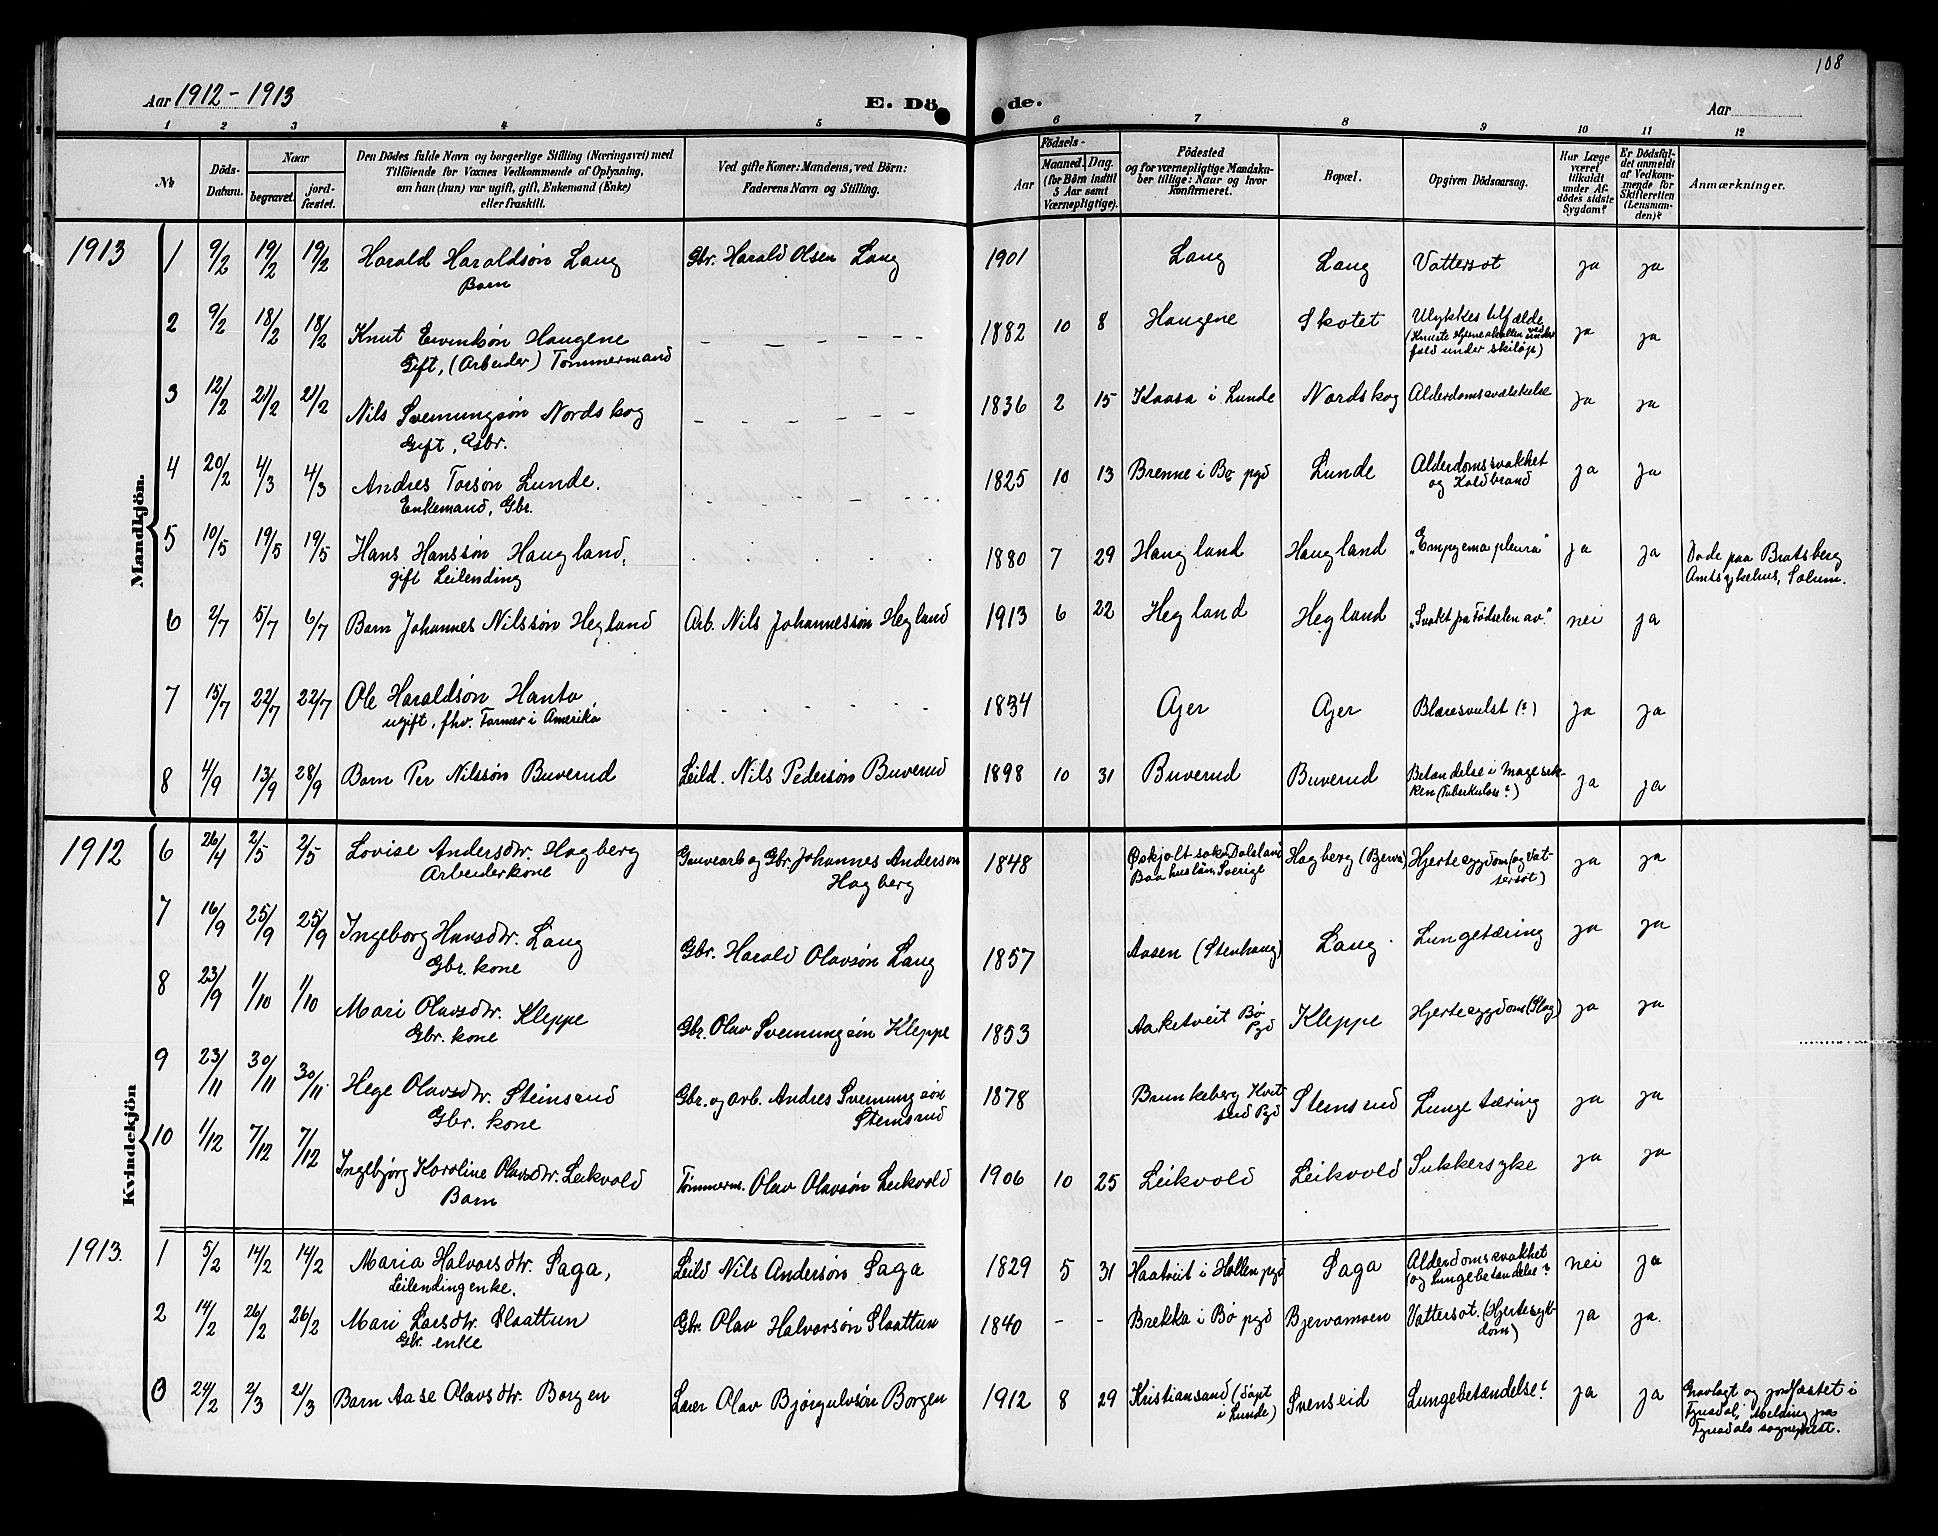 108
Aar 1912 - 1913
E. Dö de.
Aar
1 2 3 4 5 6 7 8 9 10 11 12
No
Döds-Datum.
Naar
begravet.
jord-fæstet.
Den Dödes fulde Navn og borgerlige Stilling (Næringsvei) med
Tilföiende for Voxnes Vedkommende af Oplysning,
om han (hun) var ugift, gift, Enkemand (Enke)
eller fraskilt.
Ved gifte Koner: Mandens, ved Börn:
Faderens Navn og Stilling.
Födsels-
Aar
Maaned.
Dag.
(for Börn indtil
5 Aar samt
Værnepligtige).
Födested
og for værnepligtige Mandska-
ber tillige: Naar og hvor
konfirmeret.
Bopæl.
Opgiven Dödsaarsag.
Har Læge
været
tilkaldt
under Af-
dödes sidste
Sygdom?
Er Dödsfal-
det anmeldt
af Vedkom-
mende for
Skifteretten
(Lensman-
den)?
Anmærkninger.
Mandkjön.
1913 1 9/2 19/2 19/2 Harald Haraldsøn Lang Gbr. Harald Olsen Lang 1901 Lang Lang Vattersot ja ja
Barn
2 9/2 18/2 18/2 Knut Eivindsøn Haugene - - - - - - 1882 10 8 Haugene Skotet Ulykkestilfælde ja ja
Gift, (Arbeider) Tømmermand
fald under skiløp)
3 12/2 21/2 21/2 Nils Sveinungsøn Nordskog - - - - - - 1836 2 15 Kaasa i Lunde Nordskog Alderdomssvækkelse ja ja
Gift, Gbr.
4 20/2 4/3 4/3 Andres Torsøn Lunde. - - - - - - 1825 10 13 Brenne i Bø pgd Lunde Alderdomssvakhet ja ja
Enkemand, Gbr.
og Koldbrand
5 10/5 19/5 19/5 Hans Hanssøn Haugland, . . . . . . 1880 7 29 Haugland Haugland "Empyema pleura" ja ja Døde paa Bratsberg
gift Leilending
Amtssykehus, Solum.
6 2/7 5/7 6/7 Barn Johannes Nilssøn Hegland Arb. Nils Johannessøn Hegland 1913 6 22 Hegland Hegland "Svakt fra Fødselen av." nei ja
7 15/7 22/7 22/7 Ole Haraldsøn Hanto . . . . . . 1834 Ajer Ajer Blæresvulst (?) ja ja
ugift, fhv. Farmer i Amerika
8 4/9 13/9 28/9 Barn Per Nilssøn Buverud Leild. Nils Pedersøn Buverud 1898 10 31 Buverud Buverud Betændelse i Mavesæk- ja ja
ken (Tuberkulose?)
Kvindekjön
1912 6 26/4 2/5 2/5 Lovise Andersdtr. Hagberg Gbr. Johannes Anderson 1848 Dalsland Hagberg (Bjerva) Hjertesygdom (og Vat- ja ja
Arbeiderkone
Hagberg
Baahuslän, Sverige
tersot)
7 16/9 25/9 25/9 Ingeborg Hansdtr. Lang Gbr. Harald Olavsøn Lang 1857 Aasen (Stenhaug) Lang. Lungetæring ja ja
Gbr. kone
8 23/9 1/10 1/10 Mari Olavsdtr. Kleppe Gbr. Olav Sveinungsøn Kleppe 1853 Aaketveit Bø Pgd Kleppe Hjertesygdom (Slag) ja ja
Gbr. kone
9 23/11 30/11 30/11 Hege Olavsdtr. Steinsrud Gbr. og arb. Andres Sveinungsøn 1878 Brunkeberg Kvit- Steinsrud Lungetæring ja ja
Gbr. kone
Steinsrud
seid Pgd
10 1/12 7/12 7/12 Ingebjørg Karoline Olavsdtr. Leikvold Tømmerm. Olav Olavsøn Leikvold 1906 10 25 Leikvold Leikvold Sukkersyke ja ja
Barn
1913. 1 5/2 14/2 14/2 Maria Halvorsdtr. Saga, Leild Nils Andersøn Saga 1829 5 31 Haatveit i Hollen pgd Saga Alderdomssvakhet nei ja
Leilendingenke.
(og Lungebetændelse?
2 14/2 26/2 26/2 Mari Larsdtr. Slaattun Gbr. Olav Halvorsøn Slaattun 1840 - - Brekka i Bø pgd Bjervamoen Vattersot. (Hjertesyk- ja ja.
Gbr. enke
dom)
3 24/2 2/3 21/3 Barn Aase Olavsdtr. Borgen Lærer Olav Bjørgulvsøn Borgen 1912 8 29 Kristiansand (døpt Svenseid Lungebetændelse? ja ja Gravlagt og jordfæstet i
i Lunde)
Fyresdal. Melding fra
Fyresdals sogneprest.